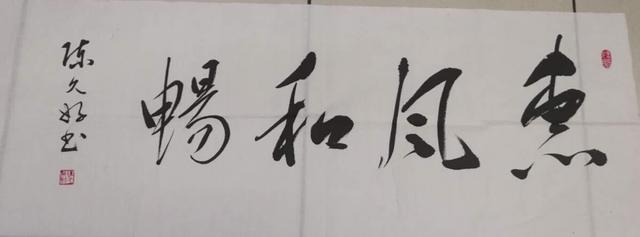 惠风和暢
陈久好书